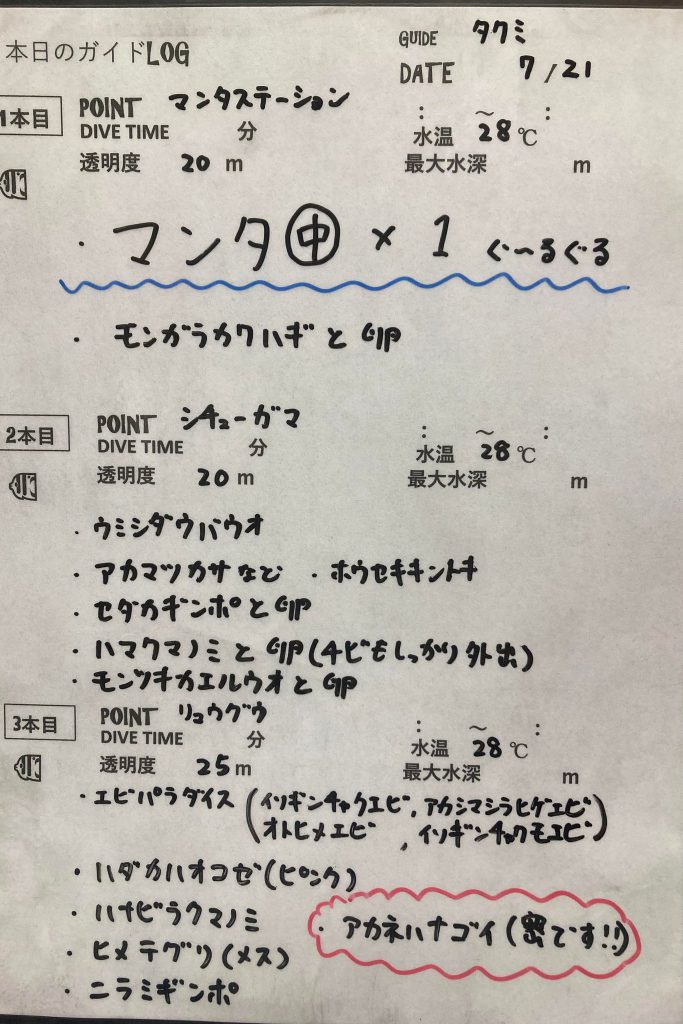 本日のガイドLOG
GUIDE タクミ
DATE 7/21
1本目 POINT マンタステーション
DIVE TIME 分 : ～ :
水温 28℃
透明度 20 m 最大水深 m
・マンタ㊥×1 ぐ～るぐる
・モンガラカワハギと GIP
2本目 POINT シチューガマ
DIVE TIME 分 : ～ :
水温 28℃
透明度 20 m 最大水深 m
・ウミシダウバウオ
・アカマツカサなど ・ホウセキキントキ
・セダカギンポと GIP
・ハマクマノミと GIP(チビもしっかり外出)
・モンツキカエルウオと GIP
3本目 POINT リュウグウ
DIVE TIME 分 : ～ :
水温 28℃
透明度 25 m 最大水深 m
・エビパラダイス (イソギンチャクエビ, アカシマシラヒゲエビ
オトヒメエビ , イソギンチャクモエビ)
・ハダカハオコゼ(ピンク)
・ハナビラクマノミ
・アカネハナゴイ(密です!!)
・ヒメテグリ(メス)
・ニラミギンポ